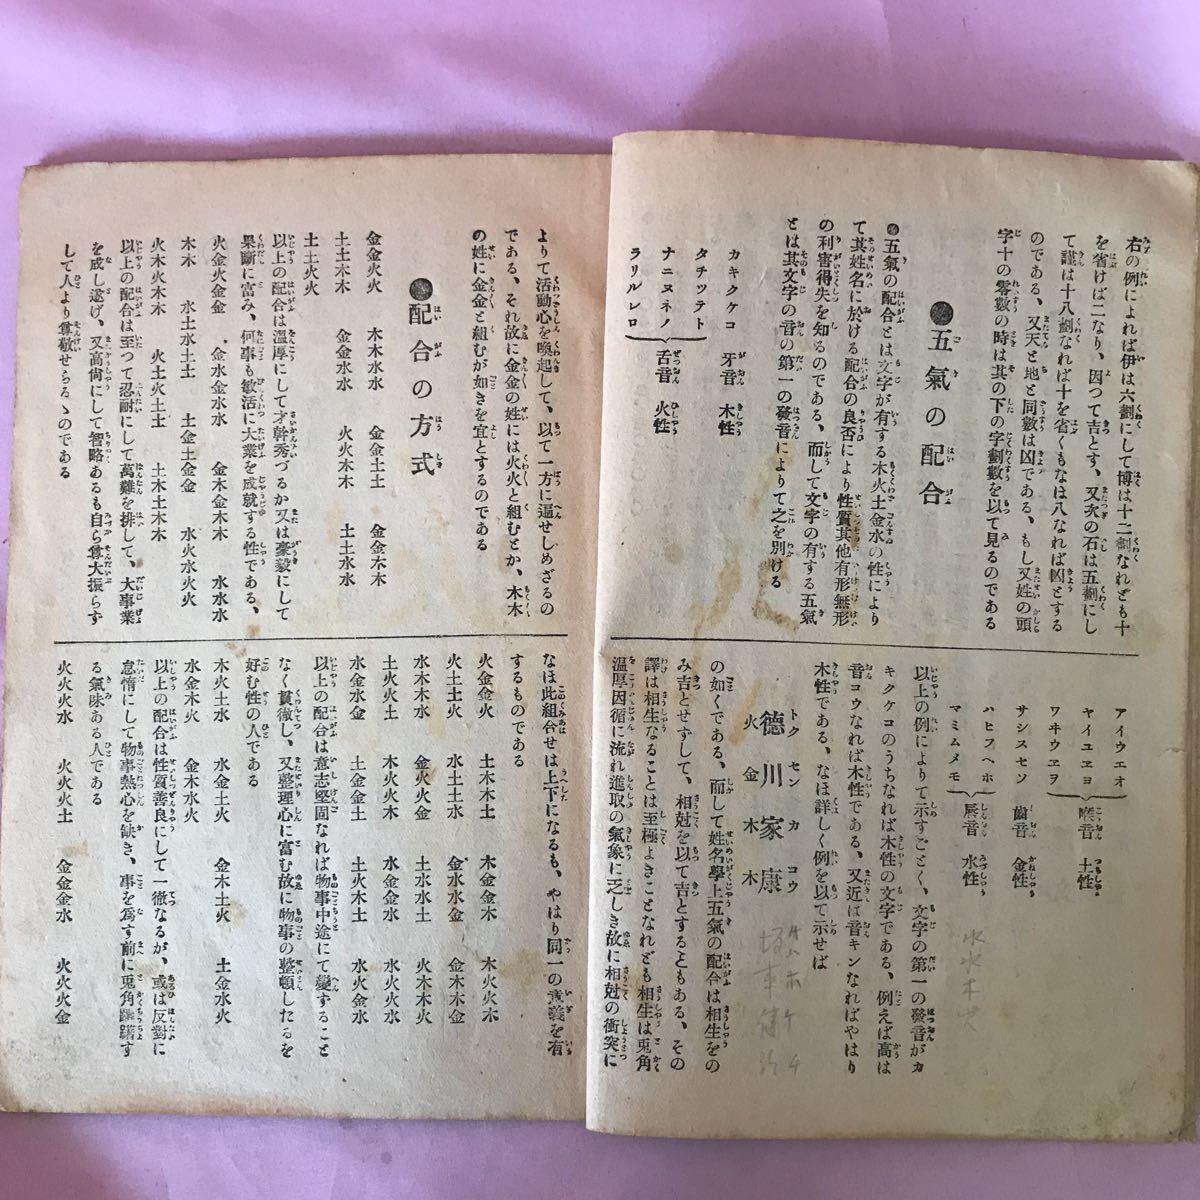 右の例によれば伊は六劃にして博は十二劃なれども十
を省けば二なり、因つて吉とす、又次の石は五劃にし
て謹は十八劃なれば十を省くもなほ八なれば凶とする
のである、又天と地と同數は凶である、もし又姓の頭
字十の零數の時は其の下の字劃數を以て見るのである
●五氣の配合
◉五氣の配合とは文字が有する木火土金水の性により
て其姓名に於ける配合の良否により性質其他有形無形
の利害得失を知るのである、而して文字の有する五氣
とは其文字の音の第一の發音によりて之を別ける
カキクケコ 牙音 木性
タチツテト
ナニヌネノ
ラリルレロ
舌音 火性
アイウエオ
ヤイユエヨ
ワヰウヱヲ
喉音 土性
サシスセソ 齒音 金性
ハヒフヘホ
マミムメモ
唇音 水性
以上の例によりて示すごとく、文字の第一の發音がカ
キクケコのうちなれば木性の文字である、例えば高は
音コウなれば木性である、又近は音キンなればやはり
木性である、なほ詳しく例を以て示せば
トク セン カ コウ
德川家康
火 金 木 木
の如くである、而して姓名學上五氣の配合は相生をの
み吉とせずして、相尅を以て吉とするともある、その
譯は相生なることは至極よきことなれども相生は兎角
溫厚因循に流れ進取の氣象に乏しき故に相尅の衝突に
よりて活動心を喚起して、以て一方に逼せしめざるの
である、それ故に金金の姓には火火と組むとか、木木
の姓に金金と組むが如きを宜とするのである
●配合の方式
金金火火 木木水水 金金土土 金金木木
土土木木 金金水水 火火木木 土土水水
土土火火
以上の配合は溫厚にして才幹秀づるか又は豪毅にして
果斷に富み、何事も敏活に大業を成就する性である、
火金火金金 金水金水水 金木金木木 水木水
木木 水土水土土 土金土金金 水火水火火
火木火木木 火土火土土 土木土木木
以上の配合は至つて忍耐にして萬難を排して、大事業
を成し遂げ、又高尚にして智略あるも自ら尊大振らず
して人より尊敬せらるゝのである
なほ此組合せは上下になるも、やはり同一の意義を有
するものである
火金金火 土木木土 木金金木 木火火木
火土土火 水土土水 金水水金 金木木金
水木木水 金火火金 土水水土 火木木火
土火火土 木火火木 水金金水 水火火水
水金水金 土金金土 土火木土 水火金水
以上の配合は意志堅固なれば物事中途にて變すること
なく貫徹し、又整理心に富む故に物事の整頓したるを
好む性の人である
木火土水 水金土火 金木土火 土金水火
水金木火 金木水火
以上の配合は性質善良にして一徹なるが、或は反對に
怠惰にして物事熱心を缺き、事を爲す前に兎角躊躇す
る氣味ある人である
火火火水 火火火土 金金金水 火火火金